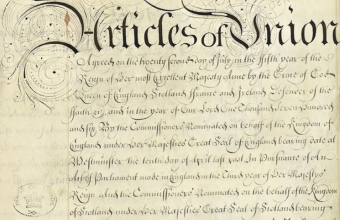 Articles of Union
Agreed on the twenty second day of July in the fifth year of the
Reign of Her most Excellent Majesty Anne by the Grace of God
Queen of England Scotland France and Ireland Defender of the
Faith &c and in the year of Our Lord One thousand seven hundred
and six By the Commissioners Nominated on behalf of the Kingdom of
England under Her Majesties Great Seal of England bearing date at
Westminster the tenth day of April last past In Pursuance of
of Parliament made in England in the third year of Her Majesties
Reign and the Commissioners Nominated on the behalf of the Kingdom
of Scotland under Her Majesties Great Seal of Scotland bearing